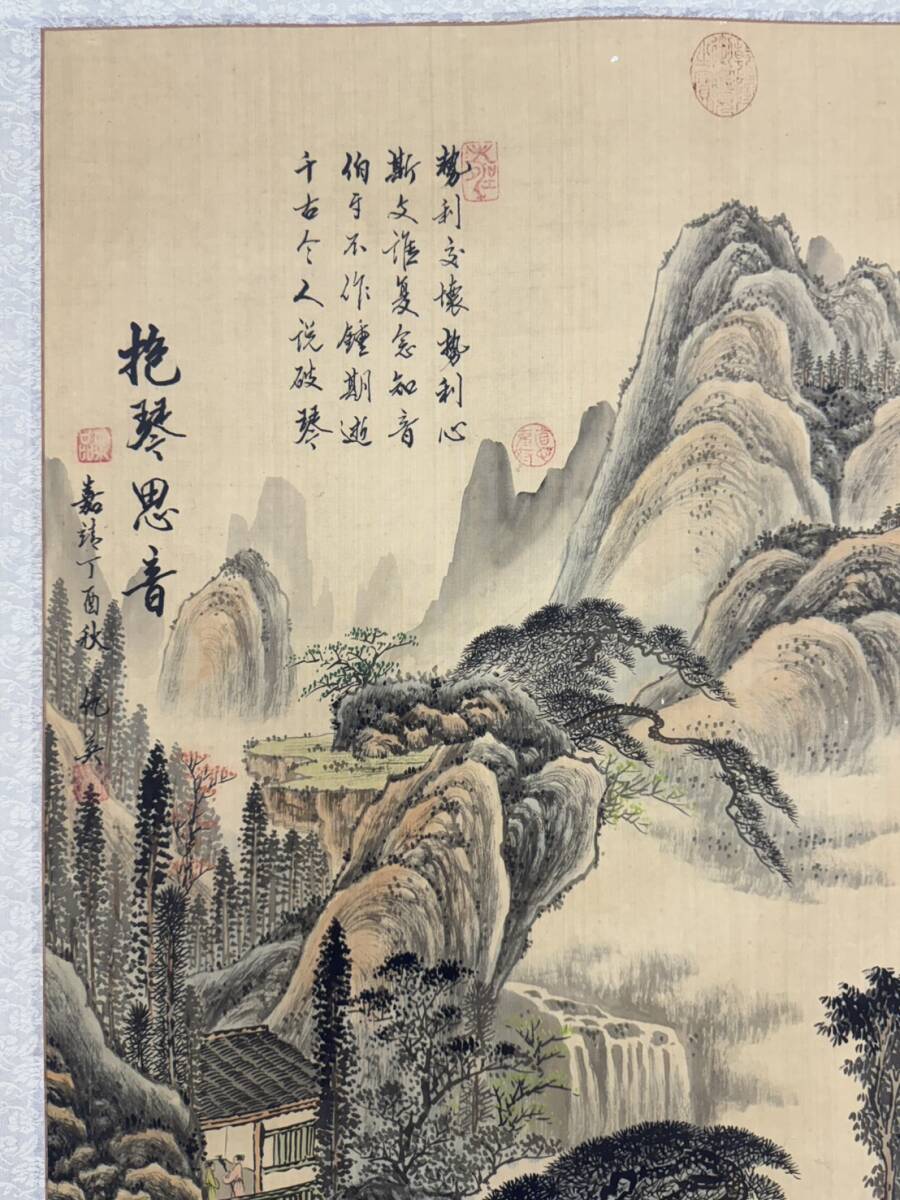 勢利交懷勢利心
斯文誰复念知音
伯牙不作鍾期逝
千古令人説破琴
抱琴思音
嘉靖丁酉秋 仇英